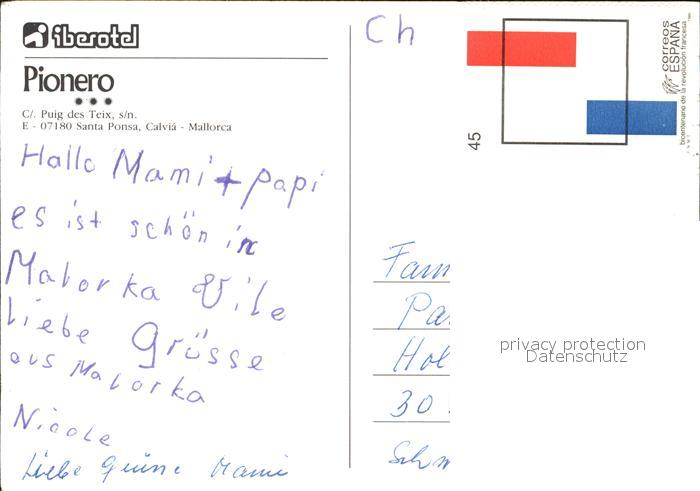 iberotel
Pionero
C/. Puig des Teix, s/n.
E - 07180 Santa Ponsa, Calviá - Mallorca
Hallo Mami + papi
es ist schön in
Malorka Vile
liebe Grüsse
aus Malorka
Nicole
Liebe Mami
Ch
correos
ESPAÑA
bicentenario de la revolución francesa
45
Fam
Pa
Hol
30
Schw
privacy protection
Datenschutz